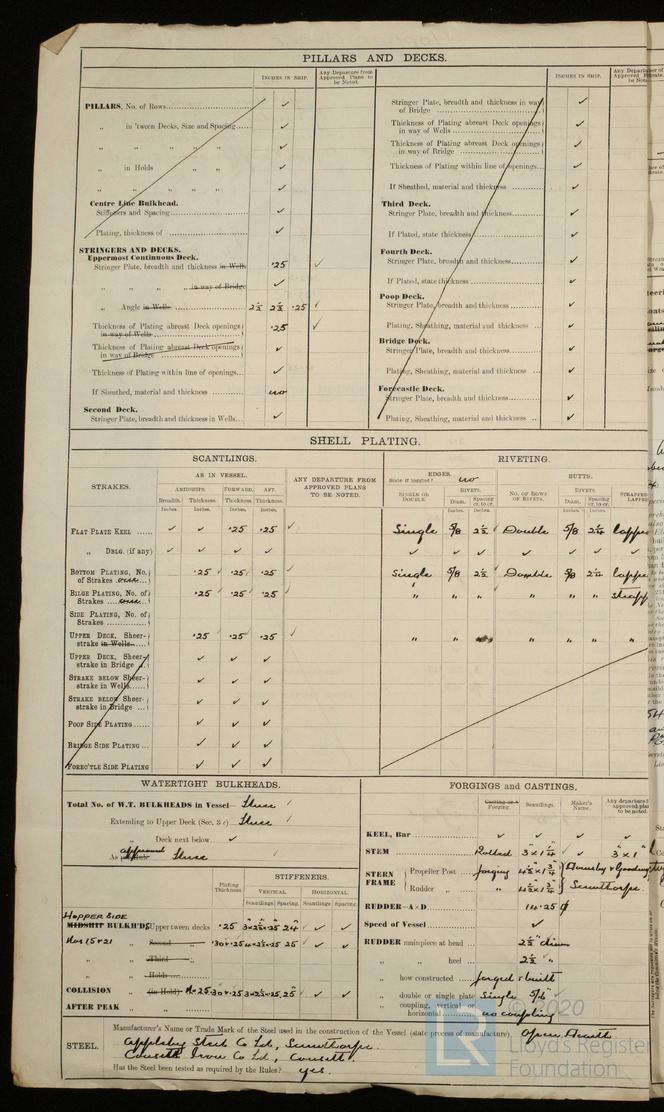 PILLARS AND DECKS.
INCHES IN SHIP.
Any Departure from Approved Plans to be Noted.
PILLARS, No. of Rows
„ in 'tween Decks, Size and Spacing
„ „ „ „
„ in Holds „ „
„ „ „ „
Centre Line Bulkhead.
Stiffeners and Spacing
Plating, thickness of
STRINGERS AND DECKS.
Uppermost Continuous Deck.
Stringer Plate, breadth and thickness in Wells .25
„ „ „ „ in way of Bridge
„ Angle in Wells 2½ 2½ .25
Thickness of Plating abreast Deck openings in way of Wells .25
Thickness of Plating abreast Deck openings in way of Bridge
Thickness of Plating within line of openings
If Sheathed, material and thickness no
Second Deck.
Stringer Plate, breadth and thickness in Wells
INCHES IN SHIP.
Stringer Plate, breadth and thickness in way of Bridge
Thickness of Plating abreast Deck openings in way of Wells
Thickness of Plating abreast Deck openings in way of Bridge
Thickness of Plating within line of openings
If Sheathed, material and thickness
Third Deck.
Stringer Plate, breadth and thickness
If Plated, state thickness
Fourth Deck.
Stringer Plate, breadth and thickness
If Plated, state thickness
Poop Deck.
Stringer Plate, breadth and thickness
Plating, Sheathing, material and thickness
Bridge Deck.
Stringer Plate, breadth and thickness
Plating, Sheathing, material and thickness
Forecastle Deck.
Stringer Plate, breadth and thickness
Plating, Sheathing, material and thickness
SHELL PLATING.
SCANTLINGS.
RIVETING.
STRAKES.
AS IN VESSEL.
AMIDSHIPS. FORWARD. AFT.
Breadth. Thickness. Thickness. Thickness.
Inches. Inches. Inches. Inches.
ANY DEPARTURE FROM APPROVED PLANS TO BE NOTED.
EDGES.
State if joggled? no
SINGLE OR DOUBLE.
RIVETS.
Diam. Spacing cr. to cr.
Inches. Inches.
BUTTS.
NO. OF ROWS OF RIVETS.
RIVETS.
Diam. Spacing cr. to cr.
Inches. Inches.
FLAT PLATE KEEL .25 .25 Single 5/8 2½ Double 5/8 2¼
„ DBLG. (if any)
BOTTOM PLATING, No. of Strakes .25 .25 .25 Single 5/8 2½ Double 5/8 2¼
BILGE PLATING, No. of Strakes .25 .25 .25 „ „ „ „ „ „
SIDE PLATING, No. of Strakes
UPPER DECK, Sheerstrake in Wells .25 .25 .25 „ „ „ „ „
UPPER DECK, Sheerstrake in Bridge
STRAKE BELOW Sheerstrake in Wells
STRAKE BELOW Sheerstrake in Bridge
POOP SIDE PLATING
BRIDGE SIDE PLATING
FOREC'TLE SIDE PLATING
WATERTIGHT BULKHEADS.
Total No. of W.T. BULKHEADS in Vessel— Three
Extending to Upper Deck (Sec. 3 c) Three
„ Deck next below
As approved Three
Plating Thickness
STIFFENERS.
VERTICAL. HORIZONTAL.
Scantlings. Spacing. Scantlings. Spacing.
HOPPER SIDE
MIDSHIP BULKH'DS Upper tween decks .25 24
Nos 15 & 21 „ Second „ 25
„ Third „
„ Holds
COLLISION „ (in Hold)
AFTER PEAK „ „
FORGINGS and CASTINGS.
Casting or Forging. Scantlings. Maker's Name.
KEEL, Bar
STEM Rolled 3 × 1¼ 3 × 1
STERN FRAME Propeller Post forging 4½ × 1¾
Rudder „ „ 4½ × 1¾ Scunthorpe.
RUDDER—A × D 14.25
Speed of Vessel
RUDDER mainpiece at head 2½ diam
„ „ heel 2½ „
„ how constructed forged & built
„ double or single plate Single 5/16
„ coupling, vertical or horizontal no coupling
STEEL.
Manufacturer's Name or Trade Mark of the Steel used in the construction of the Vessel (state process of manufacture) Open Hearth
Appleby Steel Co Ltd, Scunthorpe.
Consett Iron Co Ltd, Consett.
Has the Steel been tested as required by the Rules? yes.
© 2020
LR
Lloyd's Register
Foundation